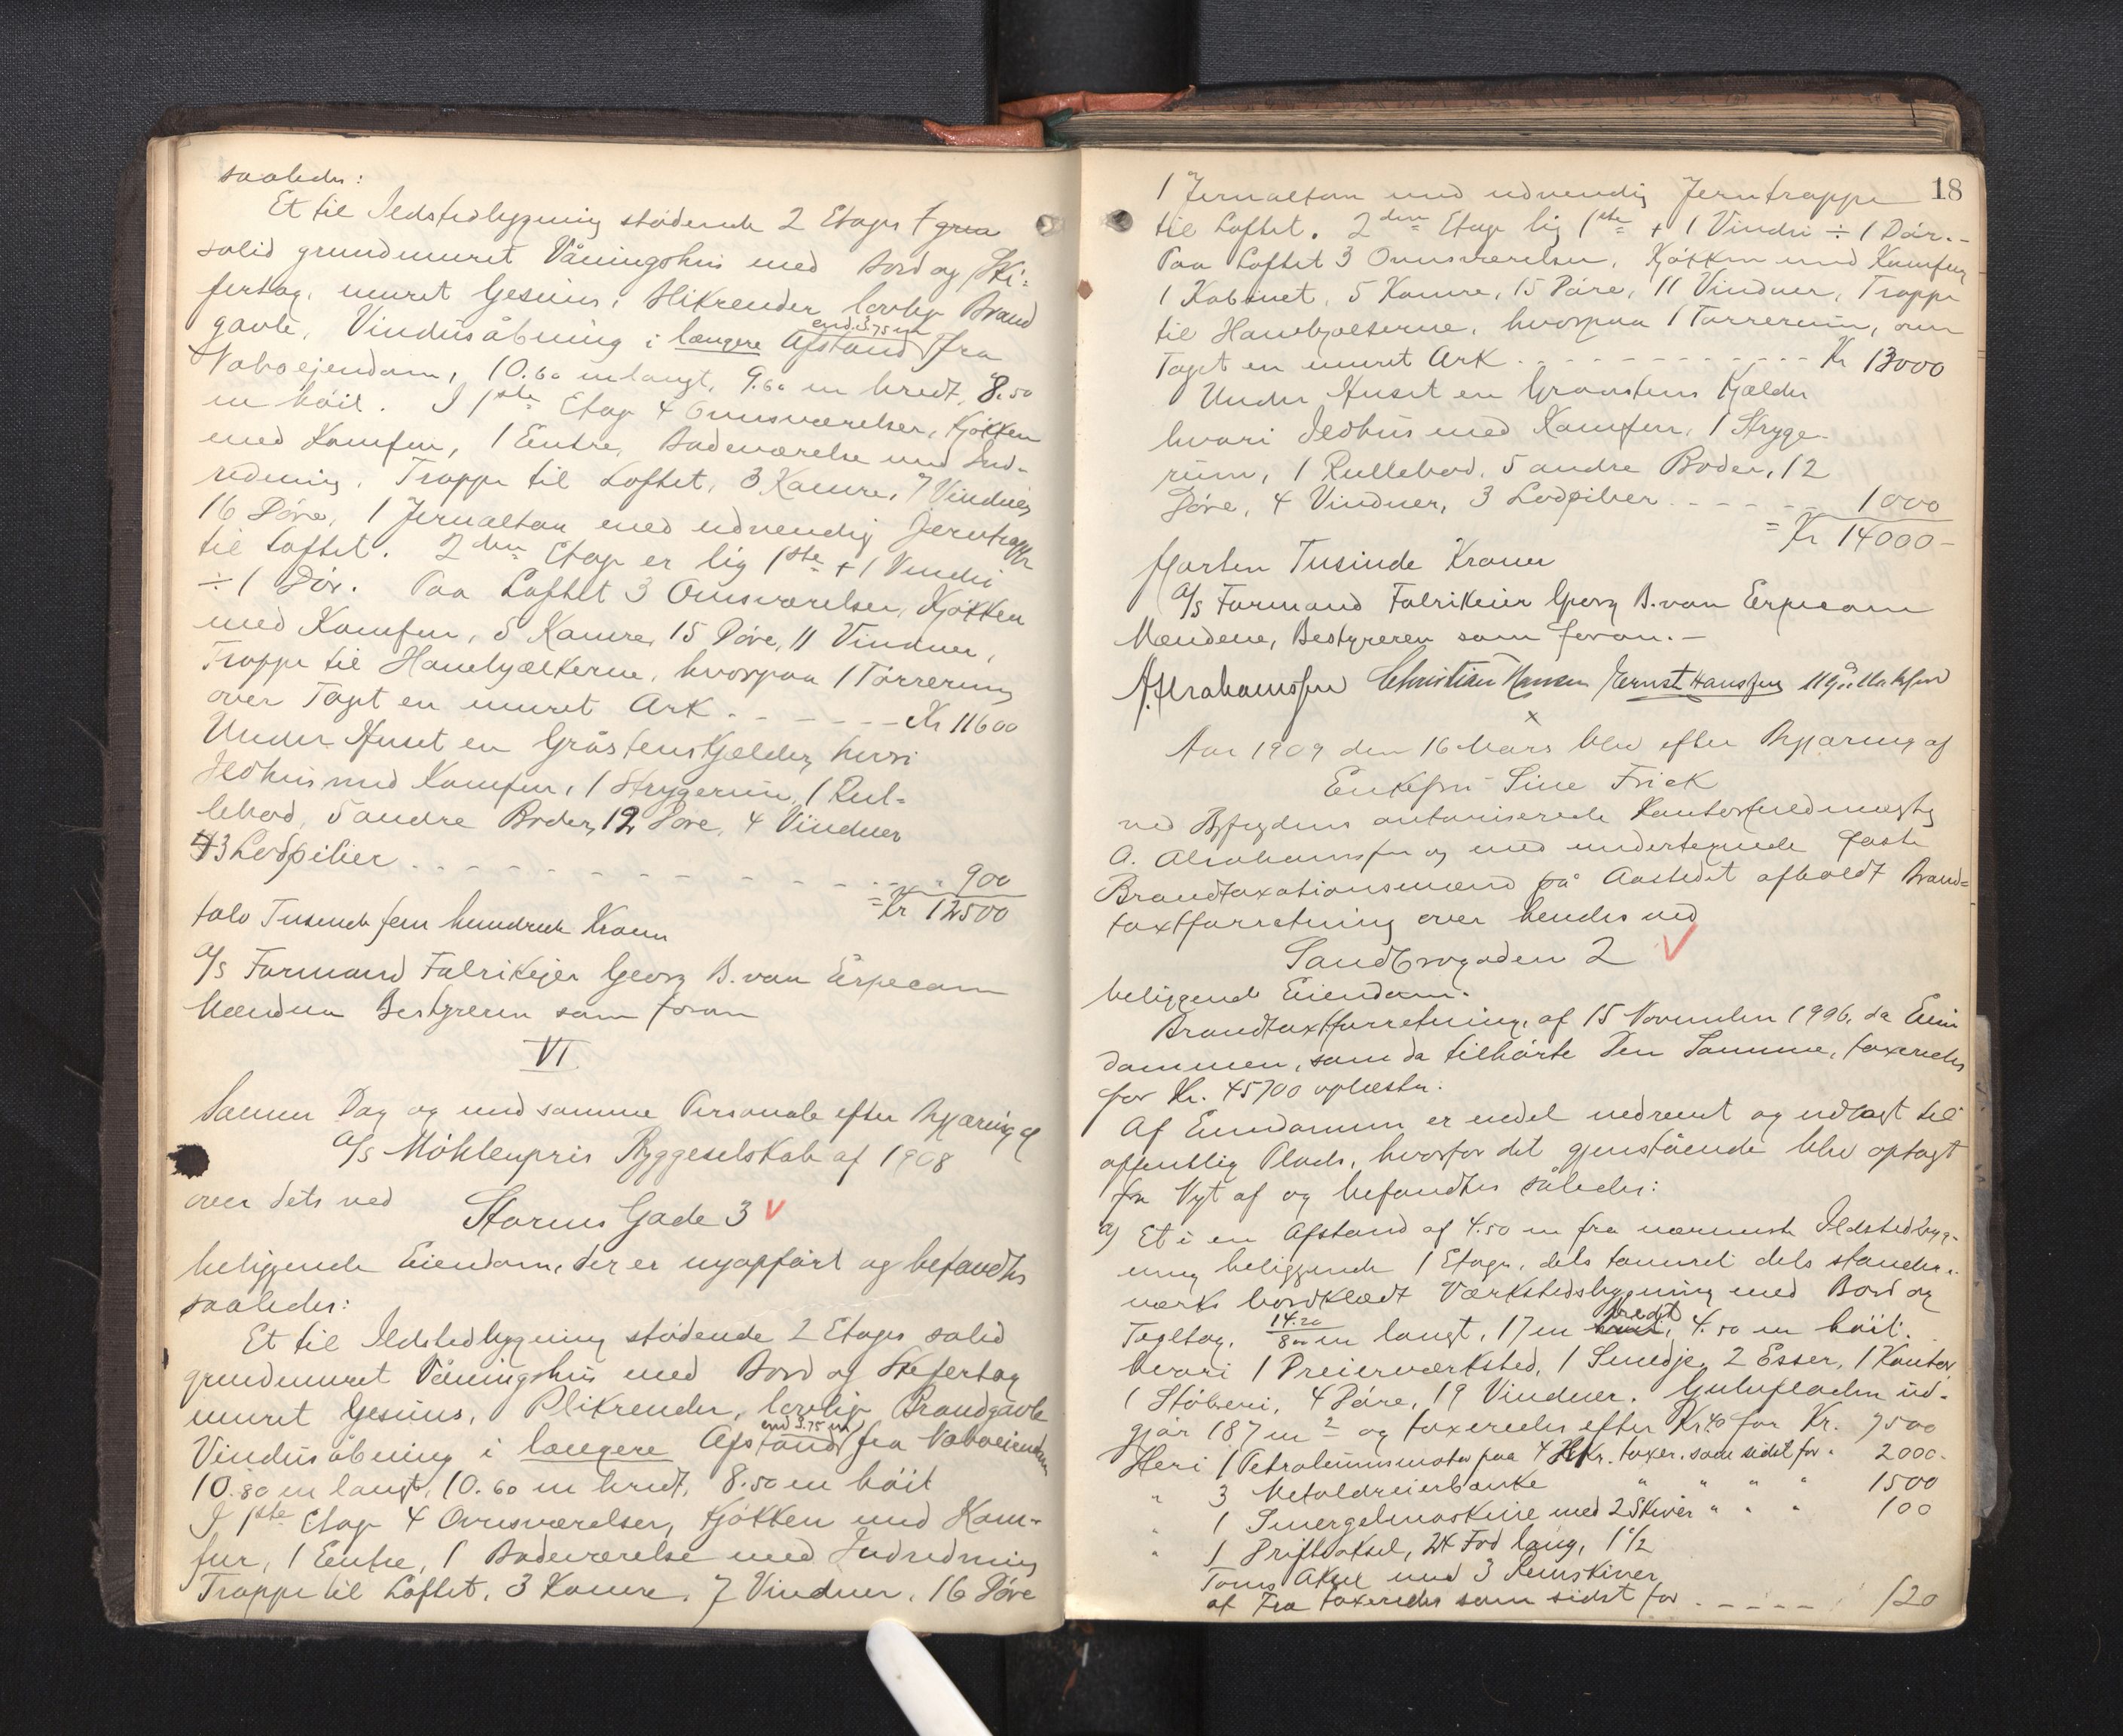 saaledes:
Et til Ildstedbygning stødende 2 Etages
solid grundmuret Våningshus med Bord og Ski-
fertag, muret Gesims, Blikrender lovlig Brand
gavle, Vindusåbning i længere Afstand end 3.75 m fra
Naboejendom, 10.60 m langt, 9.60 m bredt, 8.50
m höit. I 1ste Etage 4 Ovnsværelser, Kjøkken
med Komfur, 1 Entre, Badeværelse med Ind-
redning, Trappe til Loftet, 3 Kamre, 7 Vinduer
16 Döre, 1 Jernaltan med udvendig Jerntrappe
til Loftet. 2den Etage er lig 1ste + 1 Vindu
÷ 1 Dör. Paa Loftet 3 Ovnsværelser, Kjøkken
med Komfur, 5 Kamre, 15 Döre, 11 Vinduer,
Trappe til Hanebjælkerne, hvorpaa 1 Törrerum,
over Taget en muret Ark - - - - - - Kr 11600
Under Huset en Gråstens Kjelder, hvori
Ildhus med Komfur, 1 Strygerum, 1 Rul-
lebod, 5 andre Boder, 12 Döre, 4 Vinduer
3 Lodpiber - - - - - - - - - - - 900
= Kr 12500
tolv Tusinde fem hundrede Kroner
A/S Formand Fabrikejer Georg B. von Erpecom
Mændene Bestyreren som foran
VI
Samme Dag og med samme Personale efter Begjæring af
A/S Möhlenpris Byggeselskab af 1908
over dets ved
Storms Gade 3 V
beliggende Eiendom, der er nyopført og befandtes
saaledes:
Et til Ildstedbygning stødende 2 Etages solid
grundmuret Våningshus med Bord og Skifertag
muret Gesims, Blikrender, lovlig Brandgavle
Vindusåbning i længere Afstand end 3.75 m fra Naboeiendom
10.80 m langt, 10.60 m bredt, 8.50 m höit
I 1ste Etage 4 Ovnsværelser, Kjøkken med Kom-
fur, 1 Entre, 1 Badeværelse med Indredning
Trappe til Loftet, 3 Kamre, 7 Vinduer, 16 Döre
18
1 Jernaltan med udvendig Jerntrappe
til Loftet. 2den Etage lig 1ste + 1 Vindu ÷ 1 Dör.-
Paa Loftet 3 Ovnsværelser, Kjøkken med Komfur
1 Kabinet, 5 Kamre, 15 Döre, 11 Vinduer, Trappe
til Hanebjælkerne, hvorpaa 1 Törrerum, over
Taget en muret Ark - - - - - - - - Kr 13000
Under Huset en Graastens Kjelder
hvori Ildhus med Komfur, 1 Stryge-
rum, 1 Rullebod, 5 andre Boder, 12
Döre, 4 Vinduer, 3 Lodpiber - - - - - 1000
= Kr 14000 -
fjorten Tusinde Kroner
A/S Formand Fabrikeier Georg B. von Erpecom
Mændene, Bestyreren som foran.-
A. Abrahamsen Christian Hansen Ernst Hansen
x
Aar 1909 den 16 Mars blev efter Begjæring af
Enkefru Sine Frick
ved Byfogdens autoriserede Kontorfuldmægtig
A. Abrahamsen og med undertegnede faste
Brandtaxationsmænd på Aastedet afholdt Brand-
taxtforretning over hendes ved
Sandbrogaden 2 V
beliggende Eiendom.
Brandtaxtforretning af 15 November 1906, da Eien
dommen, som da tilhörte Den Samme, taxeredes
for Kr. 45700 oplæstes.
Af Eiendommen er endel nedrevet og udlagt til
offentlig Plads, hvorfor det gjenstående blev optagt
fra Nyt af og befandtes således:
a) Et i en Afstand af 4.50 m fra nærmeste Ildstedbyg-
ning beliggende 1 Etages, dels tomuret dels stander-
værks bordklædt Værkstedsbygning med Bord og
Tagltag, 14.20/8.00 m langt, 17 m bredt, 4.50 m höit.
hvori 1 Dreierværksted, 1 Smedje, 2 Esser, 1 Kontor
1 Støberi, 4 Döre, 19 Vinduer. Gulvfladen ud-
gjör 187 m2 og taxeredes efter Kr 40 for Kr. 7500
Heri 1 Petroleumsmotor paa 4 HKr. taxer. som sidst for " 2000.
" 3 Metaldreierbænke " " " 1500
" 1 Smergelmaskine med 2 Skiver " " " 100
" 1 Driftsaksel, 24 Fod lang, 1½
Toms Aksel med 3 Remskiver
af Træ taxeredes som sidst for - - - - - 120